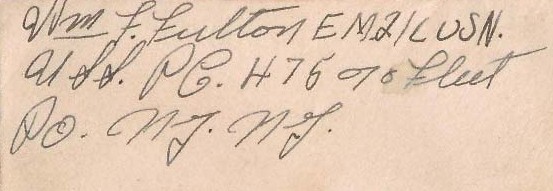 Wm F. Fulton EM2/C USN.
U.S.S. P.C. 476 % Fleet
P.O. N.Y. N.Y.